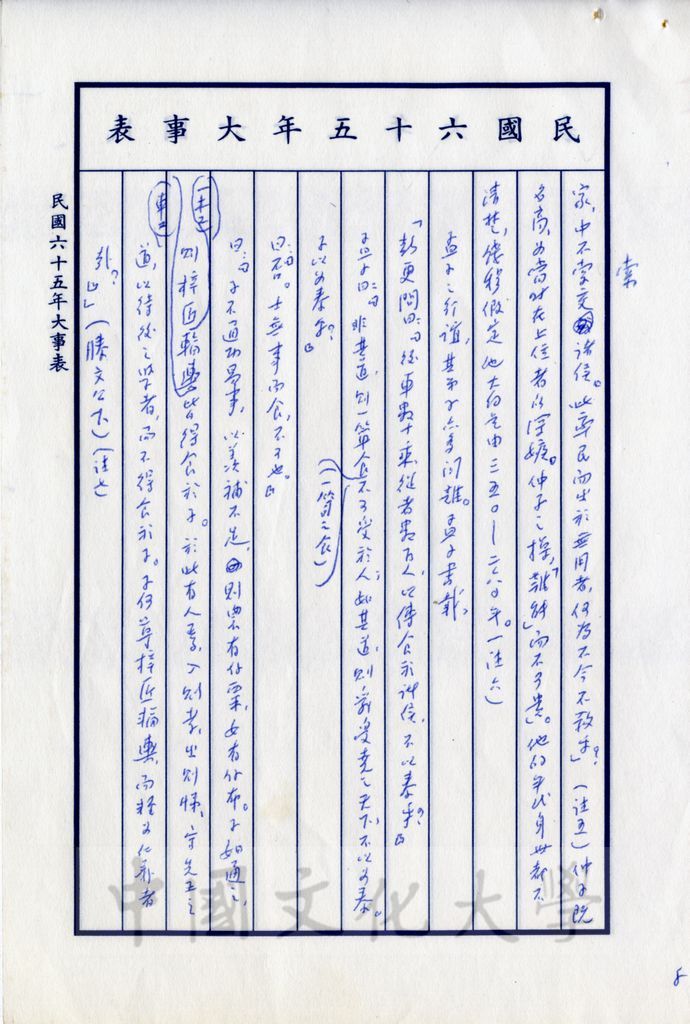 民國六十五年大事表
索
家，中不索交諸侯。此率民而出於無用者，何為不今不殺乎？」（註五）仲子既
名高，為當時在上位者所深嫉。仲子之操，「難能」而不可貴。他的年代身世都不
清楚，錢穆假定他大約是由三五〇—二六〇年。（註六）
孟子之行誼，其弟子亦多問難。孟子書載，
「彭更問曰：曰後車數十乘，從者數百人，以傳食於諸侯，不以泰乎？」
孟子曰：曰非其道，則一簞食不可受於人；如其道，則舜受堯之天下，不以為泰。
（一簞之食）
子以為泰乎？」
曰：曰否。士無事而食，不可也。」
曰：曰子不通功易事，以羨補不足，則農有餘粟，女有餘布。子如通之，
則梓匠輪輿皆得食於子。於此有人焉，入則孝，出則悌，守先王之
道，以待後之學者，而不得食於子。子何尊梓匠輪輿，而輕為仁義者
哉？」」（滕文公下）（註七）
民國六十五年大事表
中國文化大學
8